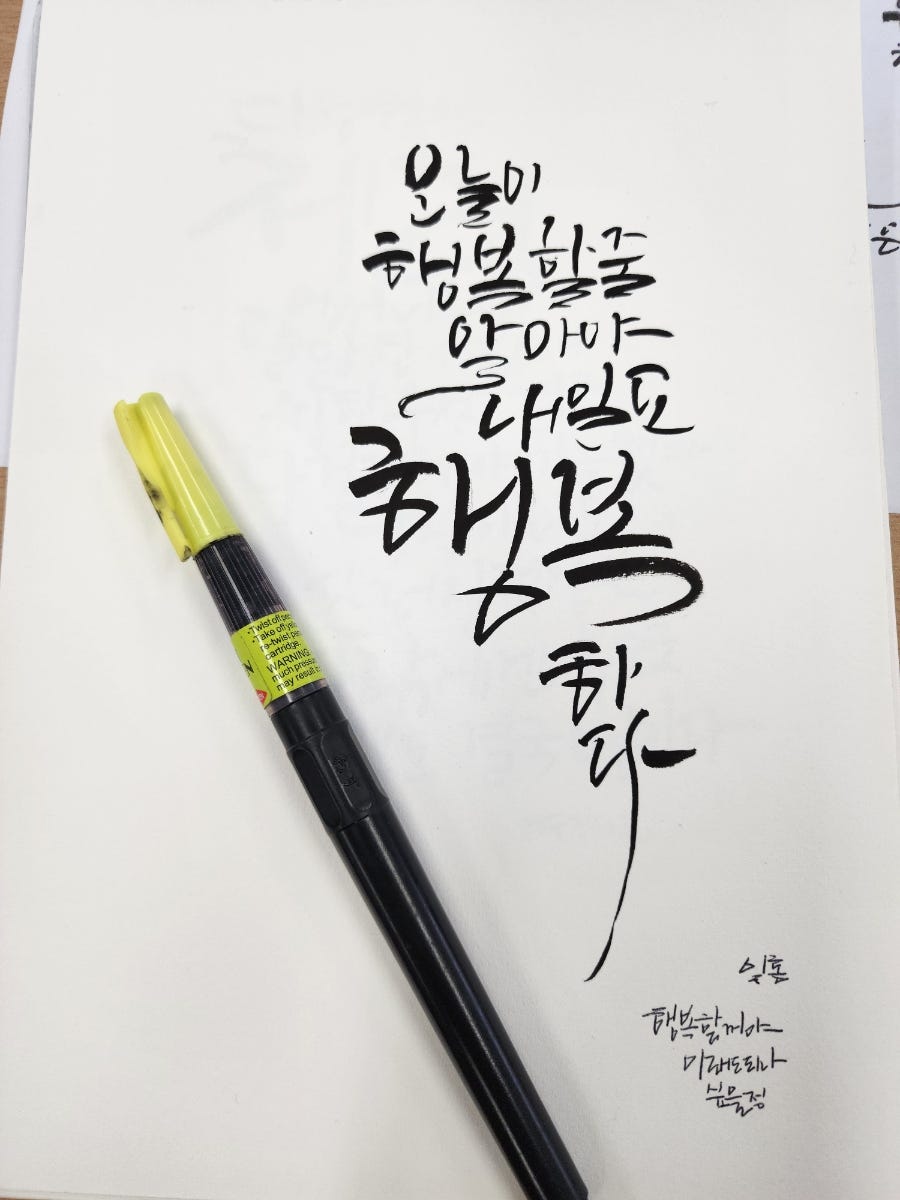 오늘이
행복할줄
알아야
내일도
행복
하다
행복할꺼야
Twist off pen
Take off ye
re-twist pen
cartridge.
WARNING:
much pressu
may result